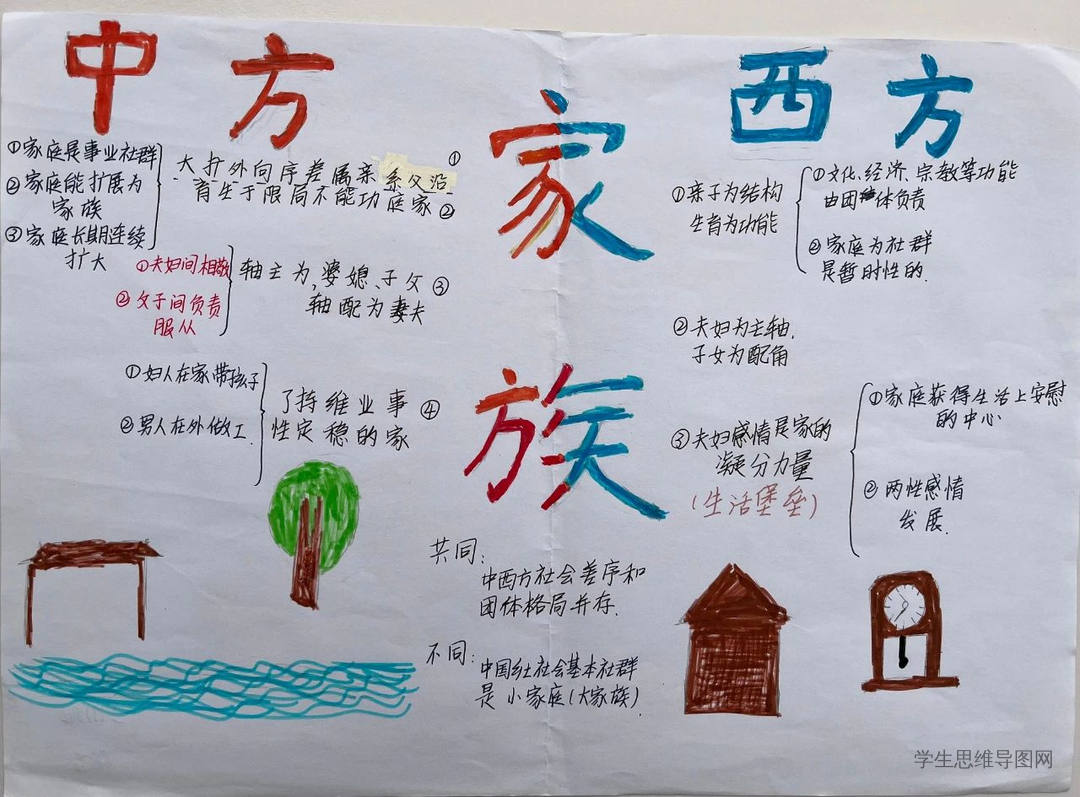 中方
西方
家
族
①家庭是事业社群
②家庭能扩展为
家族
③家庭长期连续
扩大
①沿父系亲属差序向外扩大
②家庭功能不局限于生育
①夫妇间相敬
②父子间负责
服从
③父子、媳婆,为主轴
夫妻为配轴
①妇人在家带孩子
②男人在外做工.
④事业维持了
家的稳定性
①亲子为结构
生育为功能
①文化、经济、宗教等功能
由团体负责
②家庭为社群
是暂时性的.
②夫妇为主轴.
子女为配角
③夫妇感情是家的
凝分力量
(生活堡垒)
①家庭获得生活上安慰
的中心
②两性感情
发展.
共同:
中西方社会差序和
团体格局并存.
不同:
中国乡土社会基本社群
是小家庭(大家族).
学生思维导图网